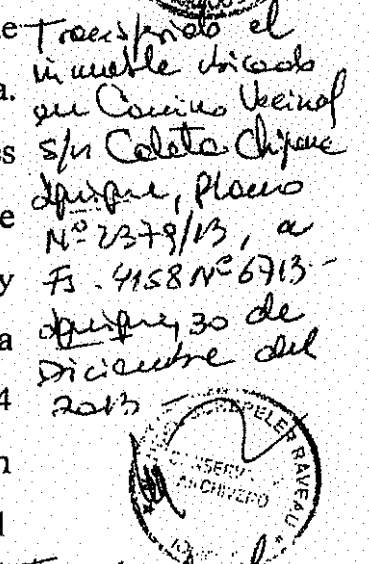 e Transferido el
inmueble ubicado
a. en Camino Vecinal
es s/n Caleta Chipana
e Iquique, Plano
Nº 2379/13, a
y Fs. 4158 Nº 6713.-
a Iquique, 30 de
Diciembre del
4 2013 -
n
RAVEAU
CONSERV
ARCHIVERO
l